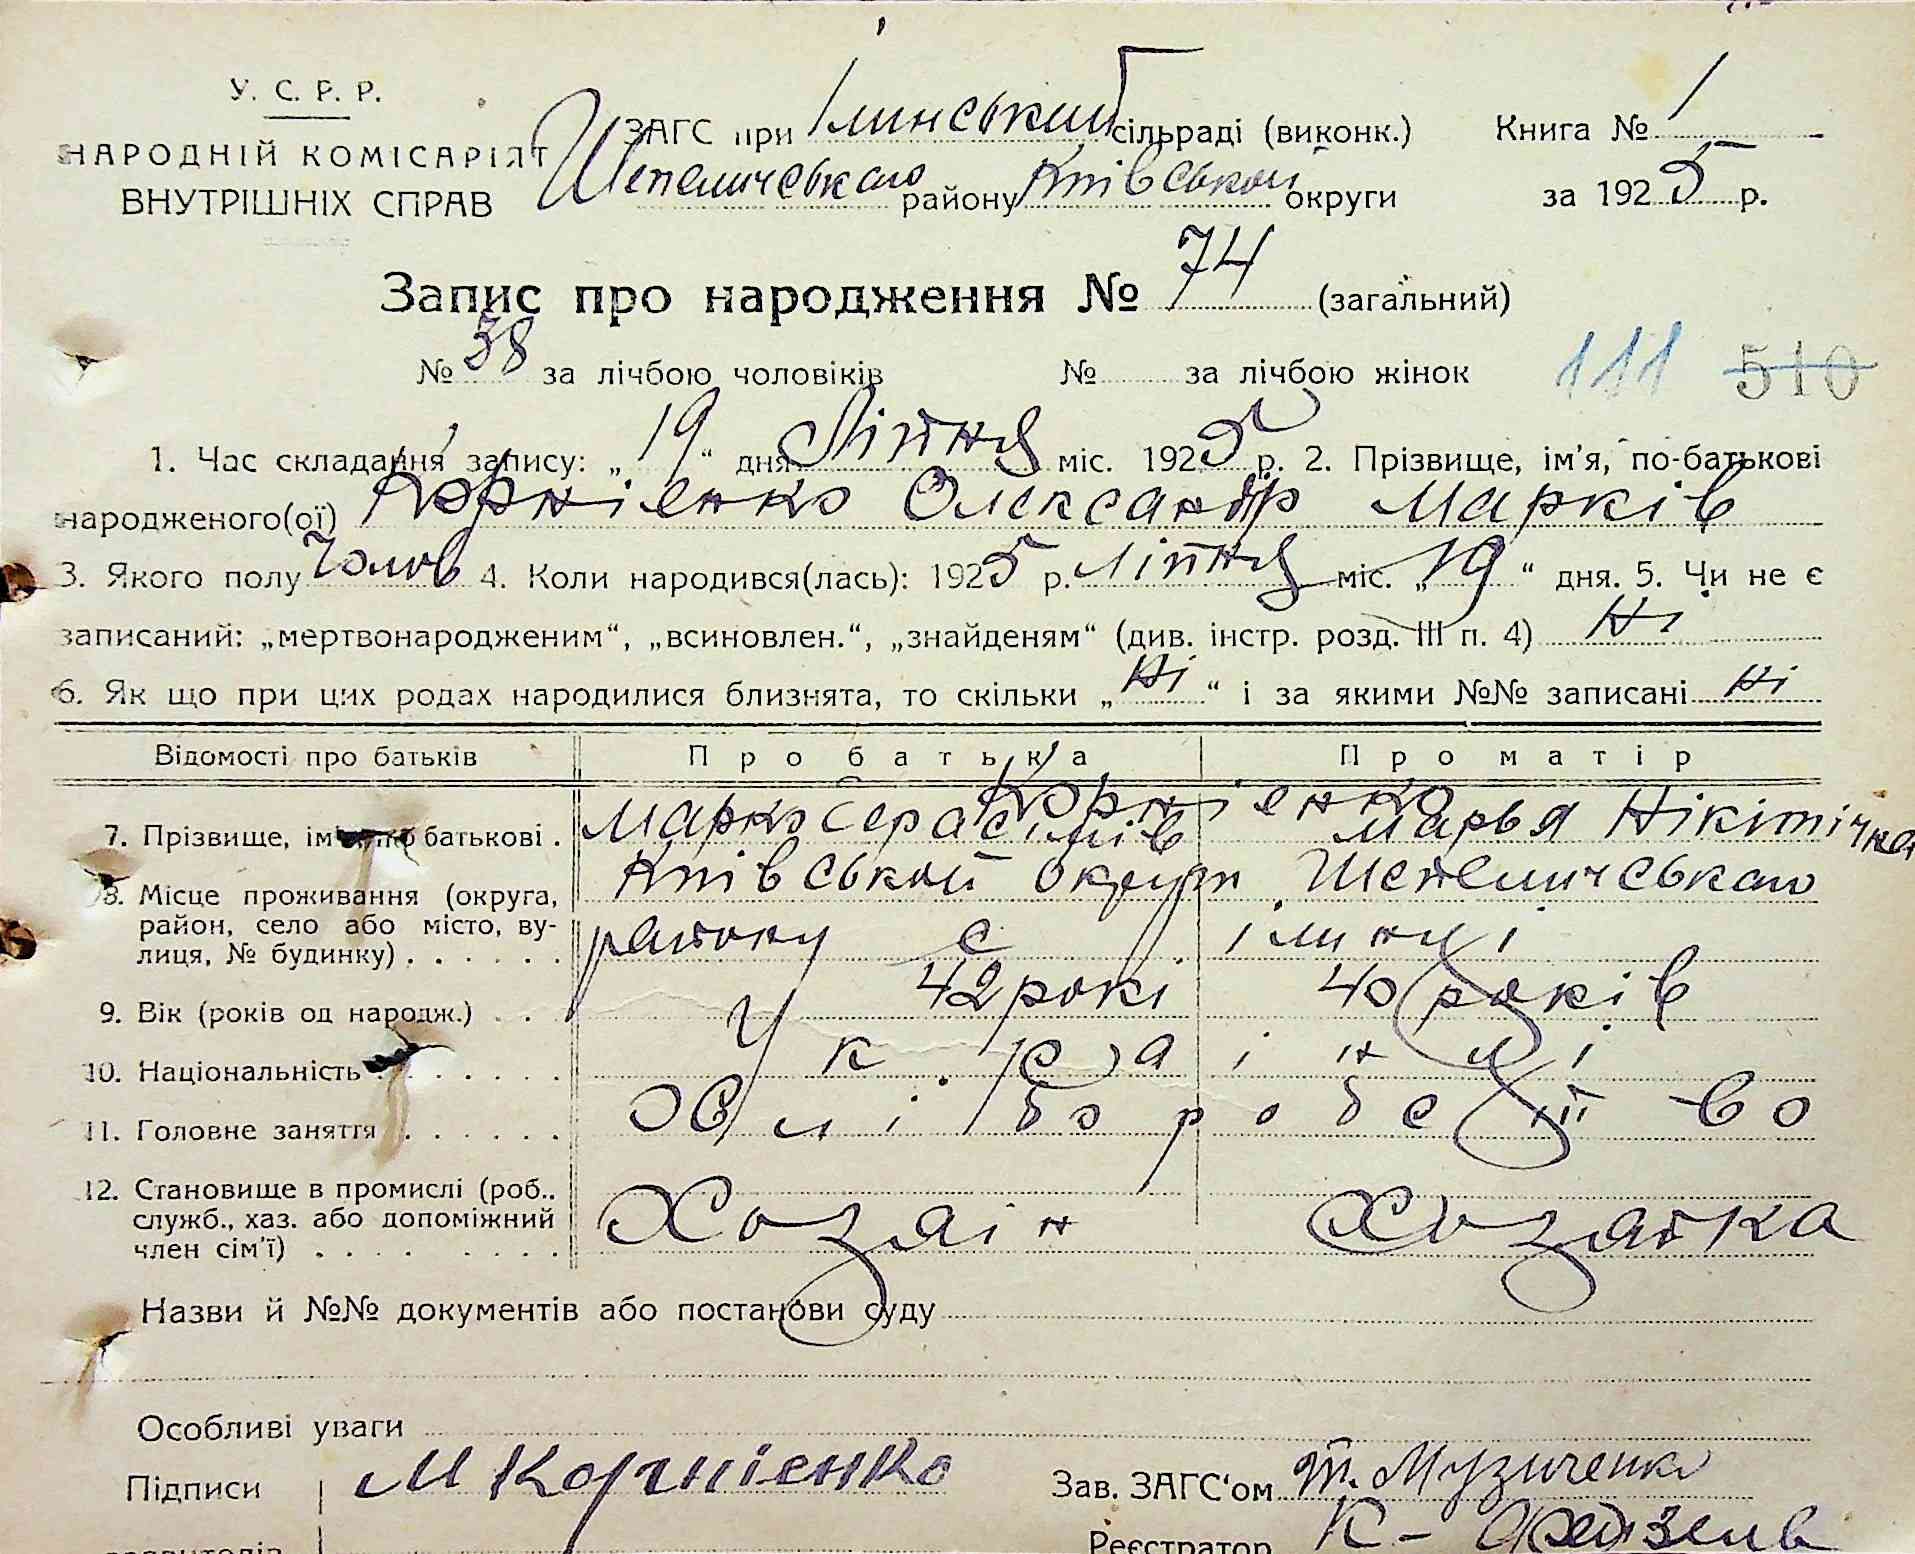 У. С. Р. Р.
НАРОДНІЙ КОМІСАРІЯТ
ВНУТРІШНІХ СПРАВ
ЗАГС при Ілинський сільраді (виконк.) Книга № 1
Шепеличського району Київської округи за 1925 р.
Запис про народження № 74 (загальний)
№ 38 за лічбою чоловіків № за лічбою жінок 111 510
1. Час складання запису: „19“ дня Ліпня міс. 1925 р. 2. Прізвище, ім’я, по-батькові
народженого(ої) Корнієнко Олександр Марків
3. Якого полу Чолов 4. Коли народився(лась): 1925 р. Ліпня міс. „19“ дня. 5. Чи не є
записаний: „мертвонародженим“, „всиновлен.“, „знайденям“ (див. інстр. розд. III п. 4) Ні
6. Як що при цих родах народилися близнята, то скільки „Ні“ і за якими №№ записані Ні
Відомості про батьків Про батька Про матір
Корнієнко
7. Прізвище, ім батькові . Марко Герасимів Марья Нікітічна
8. Місце проживання (округа, Київської округи Шепеличського
район, село або місто, ву-
лиця, № будинку) . . . . . . району с Ілинці
9. Вік (років од народж.) . . 42 рокі 40 років
10. Національність . . . . . . . Українці
11. Головне заняття . . . . . . Хліборобство
12. Становище в промислі (роб.,
служб., хаз. або допоміжний Хозаін Хозайка
член сім’ї) . . . . . . . . .
Назви й №№ документів або постанови суду
Особливі уваги
Підписи М Корнієнко Зав. ЗАГС‘ом Музиченко
Реєстратор К-